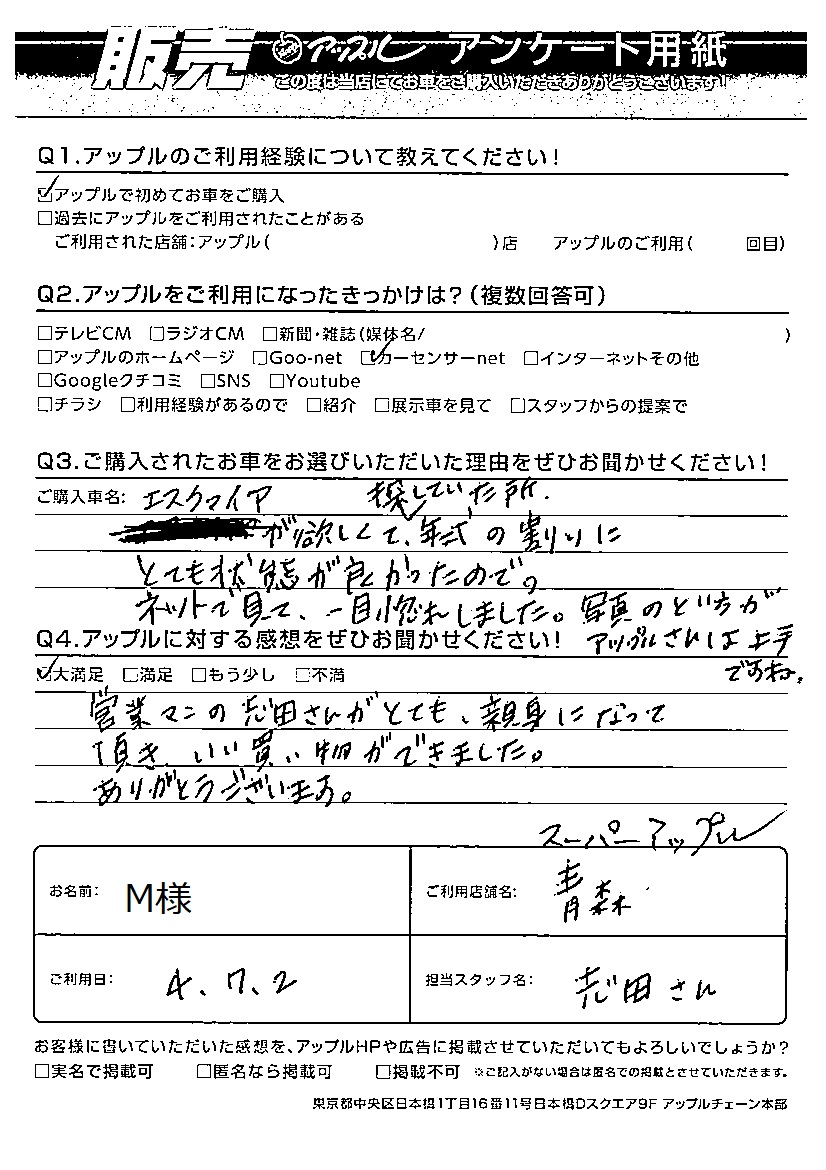 販売 アップル アンケート用紙
この度は当店にてお車をご購入いただきありがとうございます!
Q1.アップルのご利用経験について教えてください!
☑アップルで初めてお車をご購入
□過去にアップルをご利用されたことがある
ご利用された店舗:アップル( )店 アップルのご利用( 回目)
Q2.アップルをご利用になったきっかけは?(複数回答可)
□テレビCM □ラジオCM □新聞・雑誌(媒体名/ )
□アップルのホームページ □Goo-net ☑カーセンサーnet □インターネットその他
□Googleクチコミ □SNS □Youtube
□チラシ □利用経験があるので □紹介 □展示車を見て □スタッフからの提案で
Q3.ご購入されたお車をお選びいただいた理由をぜひお聞かせください!
ご購入車名: エスクァイア 探していた所.
が欲しくて、年式の割りに
とても状態が良かったので。
ネットで見て、一目惚れしました。写真のとり方が
アップルさんは上手
ですね。
Q4.アップルに対する感想をぜひお聞かせください!
☑大満足 □満足 □もう少し □不満
営業マンの志田さんがとても、親身になって
頂き いい買い物ができました。
ありがとうございます。
お名前: M様
ご利用店舗名: スーパーアップル
青森
ご利用日: 4、7、2
担当スタッフ名: 志田さん
お客様に書いていただいた感想を、アップルHPや広告に掲載させていただいてもよろしいでしょうか?
□実名で掲載可 □匿名なら掲載可 □掲載不可 ※ご記入がない場合は匿名での掲載とさせていただきます。
東京都中央区日本橋1丁目16番11号日本橋Dスクエア9F アップルチェーン本部